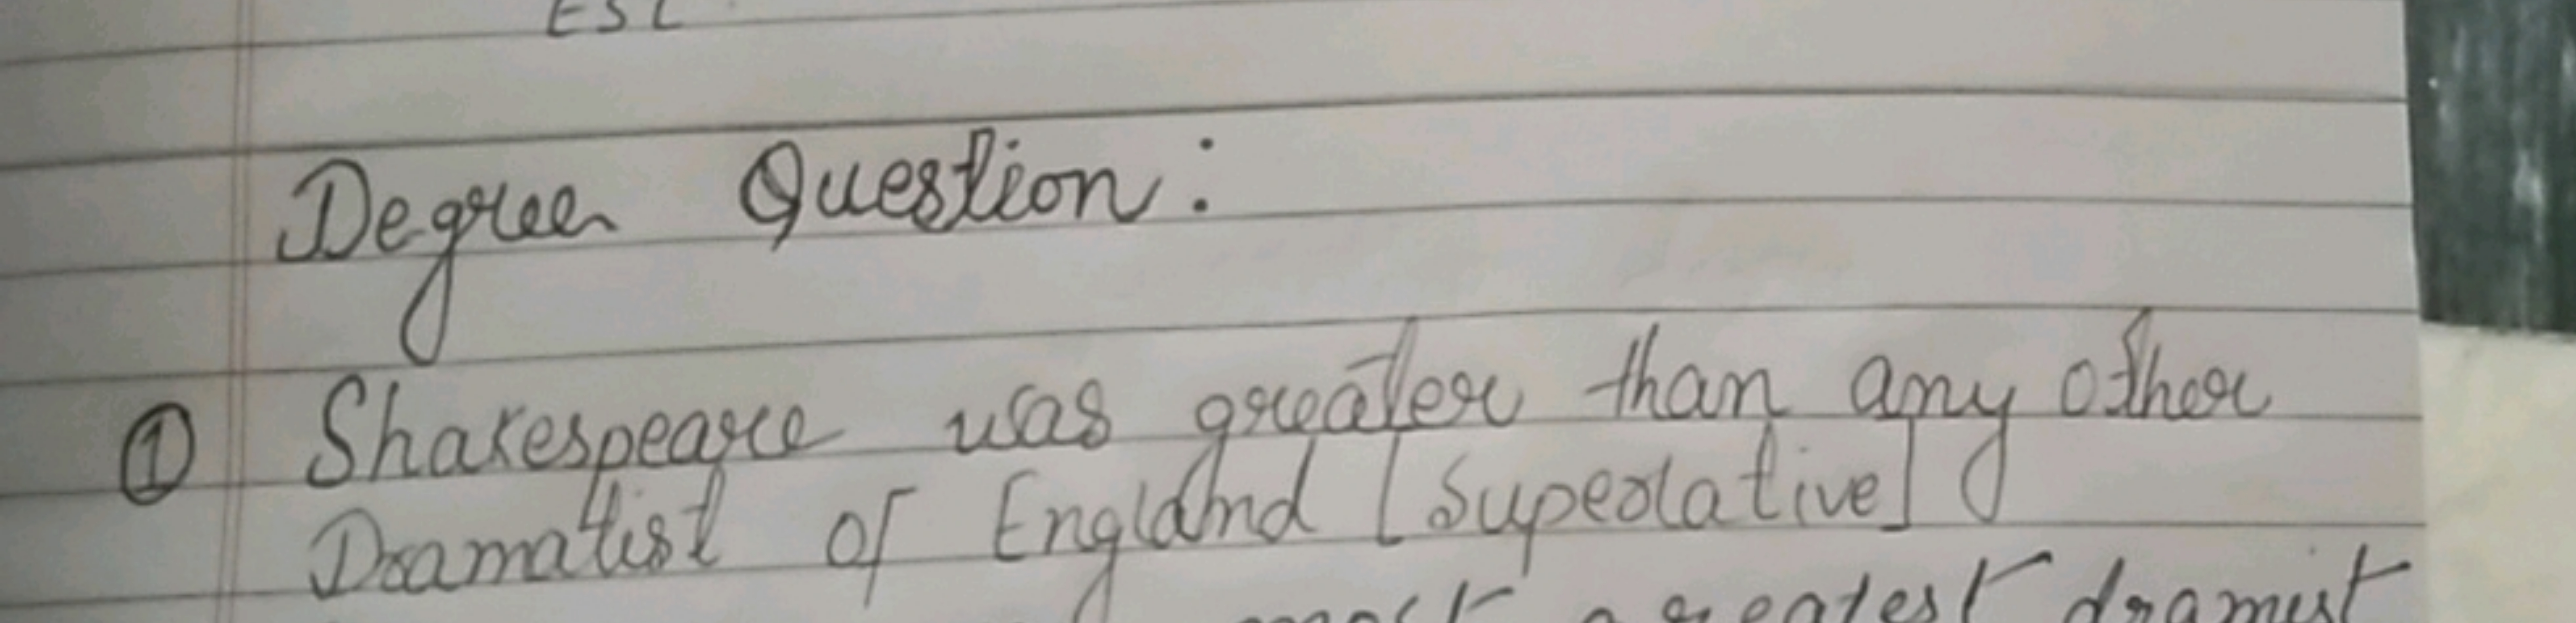 ESL
Degree Question:
① Shakespeare was greater than any other
Dramatist of England [Superlative]
most greatest dramist